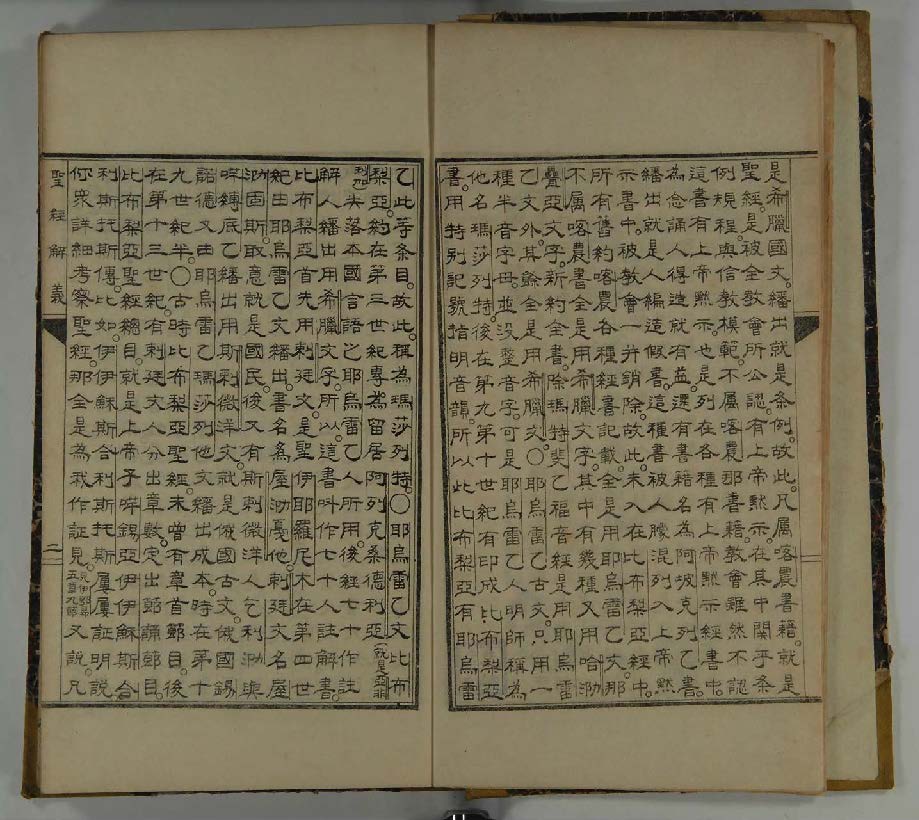 是希臘國文。繙出就是条例。故此。凡属喀農書籍。就是
聖經。是被全教會所公認。有上帝黙示。在其中関乎条
例規程與信教模範。不属喀農那書籍。教會雖然不認
這書有上帝黙示。也是列在各種有上帝黙示經書中。
為念誦人得造就有益。還有書籍名為阿坡克列乙書。
繙出就是人編造假書。這種書被人朦混列入上帝黙
示書中。被教會一并銷除。故此。未入在此布梨亞經中。
所有舊約喀農各種經書記載。全是用耶烏雷乙文。那
不属喀農書全是用希臘文字。其中有幾種又用哈泐
疊亞文字。新約全書。除瑪特斐乙福音經是用耶烏雷
乙文外。其餘全是用希臘文。〇耶烏雷乙古文。只用一
種半音字母。並沒整音字。可是耶烏雷乙人明師稱為
他名瑪莎列持。後在第九第十世紀。有印成比布梨亞
書。用特別記號指明音韻。所以此比布梨亞有耶烏雷
乙此等条目。故此。稱為瑪莎列持。〇耶烏雷乙文比布
梨亞。約在第三世紀。專為留居阿列克桑德利亞(就是亞非
利加)失落本國言語之耶烏雷乙人所用。後經七十作註
解人繙出用希臘文字。所以這書叫作七十註解書。
比布梨亞首先用剌廷文。是聖伊耶羅尼木在第四世
紀由耶烏雷乙文繙出。書名為屋泐戛他。剌廷文名屋
泐固斯取意就是國民。後又有斯剌微洋人乞利泐與
諾德。又由耶烏雷乙瑪莎列他文繙出成本。時在第十
九世紀半。〇古時比布梨亞聖經。未曾有章首節目。後
在第十三世紀有剌廷文人分出章數。定出節誦節目。
比布梨亞聖經總目。就是上帝子嘩錫亞伊伊穌斯合
利斯托斯傳。比如。伊伊穌斯合利斯托斯屢屢証明說。
你衆詳細考察聖經。那全是為我作証見。又說。凡
聖經解義
二